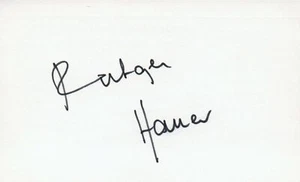 Rutger
Hauer